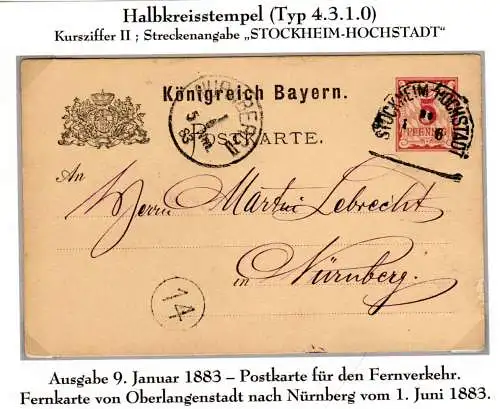 Halbkreisstempel (Typ 4.3.1.0)
Kursziffer II ; Streckenangabe „STOCKHEIM-HOCHSTADT“
Königreich Bayern.
POSTKARTE.
NÜRNBERG
5 Nm.
83
STOCKHEIM-HOCHSTADT
5
PFENNIG
1 6
An
Herrn Martin Lebrecht
in Nürnberg.
14
Ausgabe 9. Januar 1883 – Postkarte für den Fernverkehr.
Fernkarte von Oberlangenstadt nach Nürnberg vom 1. Juni 1883.